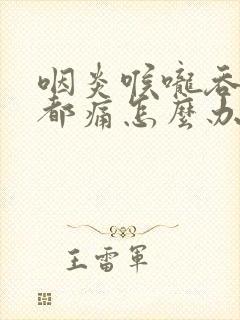 咽炎喉嚨吞
都痛怎麼办
王雷軍